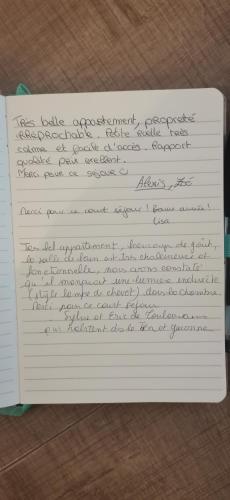 Très belle appartement, propreté
irréprochable. Petite ruelle très
calme et facile d'accès. Rapport
qualité prix excellent.
Merci pour ce séjour
Alexis, Zoé
Merci pour ce court séjour ! Bonne année !
Lisa
Très bel appartement, beaucoup de goût,
la salle de bain est très chaleureuse et
fonctionnelle, nous avons constaté
qu'il manquait une lumière indirecte
(style lampe de chevet) dans la chambre.
Merci pour ce court séjour
Sylvie et Eric de
qui habitent ds le et garonne